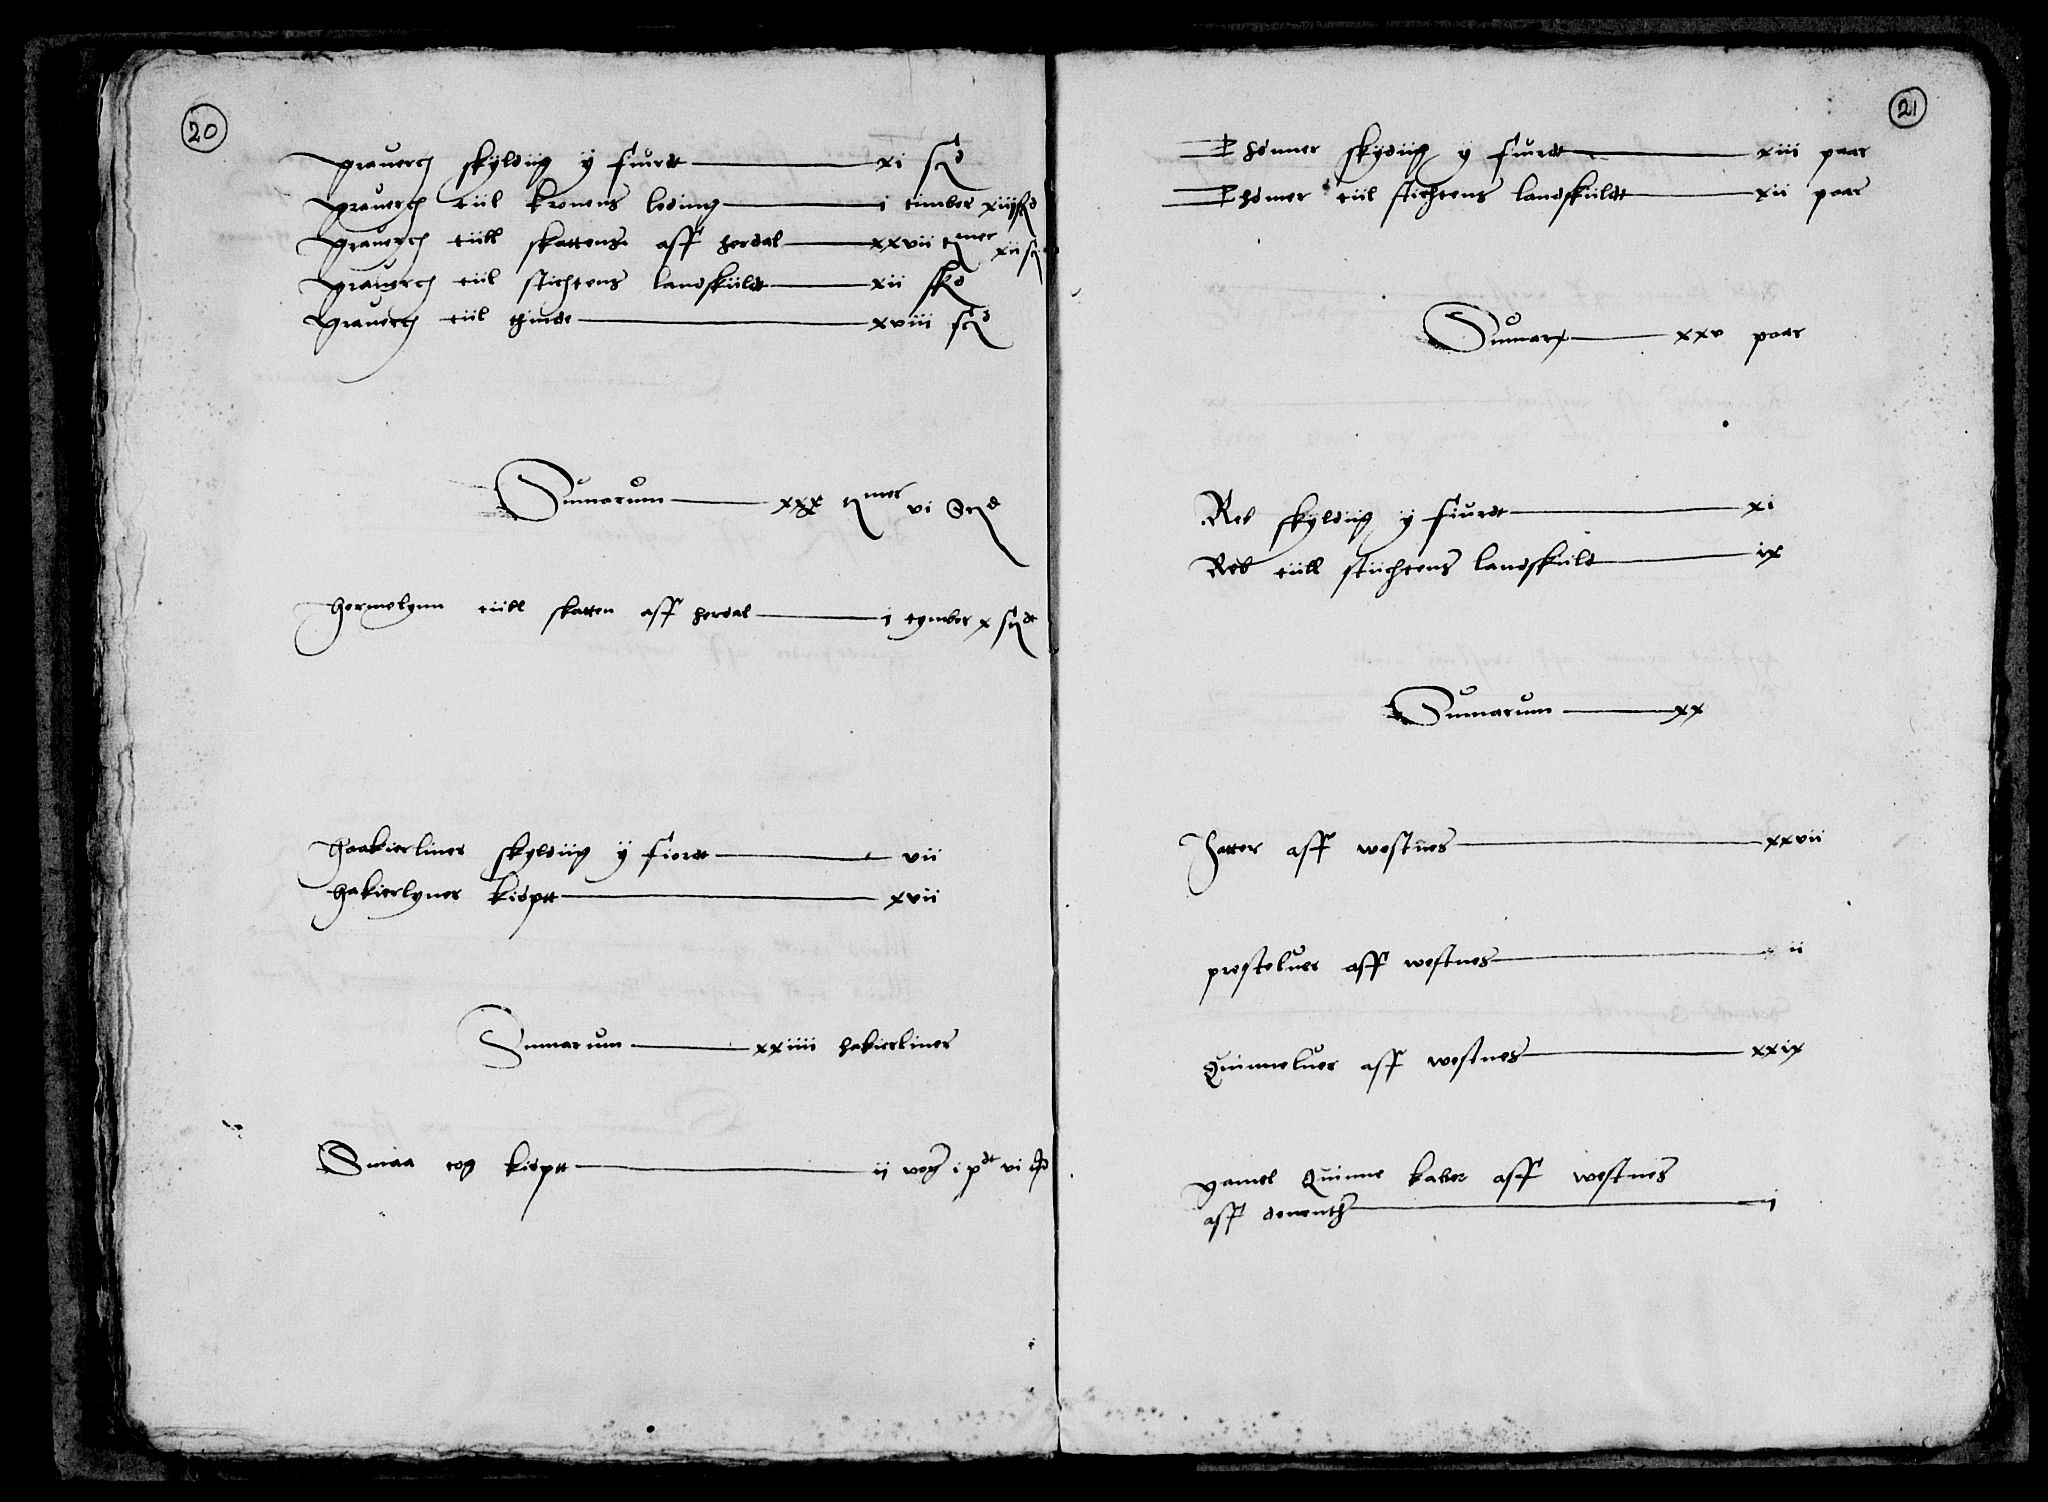 20
grauerch skyldiig y fiurdt — xi skd
grauerch tiil kronens leding — i timber xiiij skd
grauerch tiill skattens aff herdal — xxvii tmer xii skd
grauerch tiil stichtens landskiildt — xii skd
grauerch tiil thinde — xviii skd
Sumarum — xxx tmer vi skd
hermelynn tiill skatten aff herdal — i tymber x skdt
Haakierliner skyldiig ÿ fiordt — vii
hakierlyner kiøptt — xvii
Sumarum — xxiiii hakierliner
Smaa tog kiøptt — ii vog i pdt vi
21
Thønner skydiig y fiurdt — xiii paar
Thømer tiil stichtens landskiildtt — xii paar
Sumarum — xxv paar
Reb skyldiig ÿ fiurdt — xi
Reb tiill stiichtens landskiild — ix
Hatter aff westnes — xxvii
presteluer aff westnes — ii
Quinneluer aff westnes — xxix
gamel Quinne kaber aff westnes
aff deuenth — i